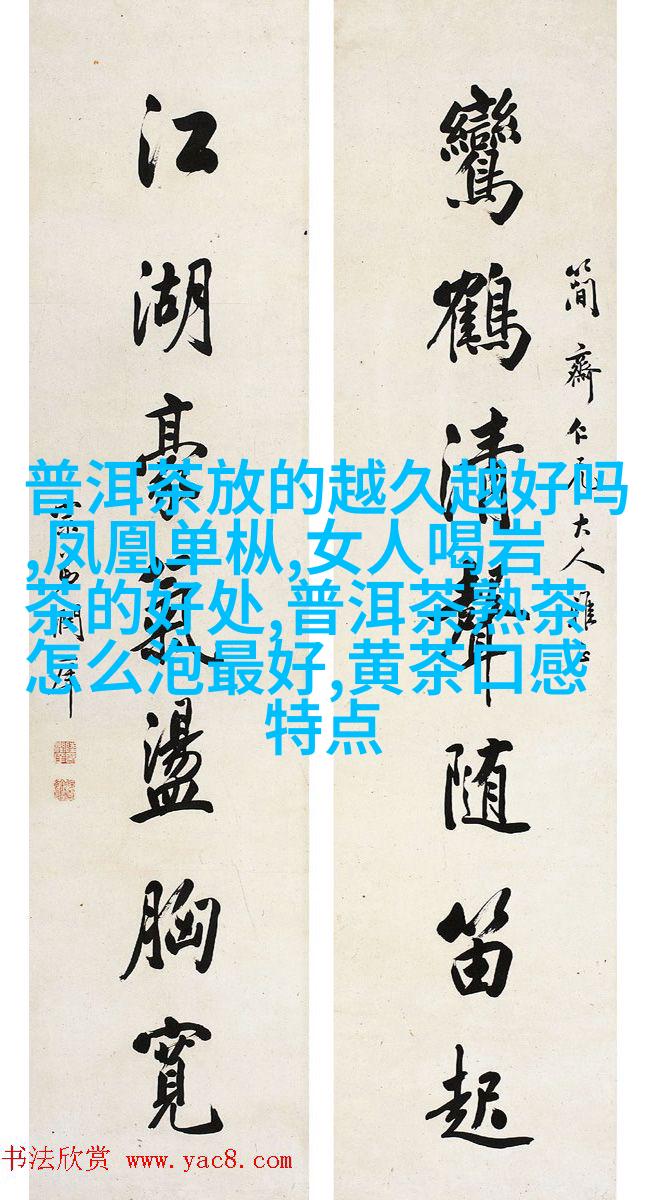 簡齋仁兄大人雅正
鸞鶴清聲随笛起
江湖豪氣盪胸寬
普洱茶放的越久越好吗
,凤凰单枞,女人喝岩
茶的好处,普洱茶熟茶
怎么泡最好,黄茶口感
特点
书法欣赏 www.yac8.com